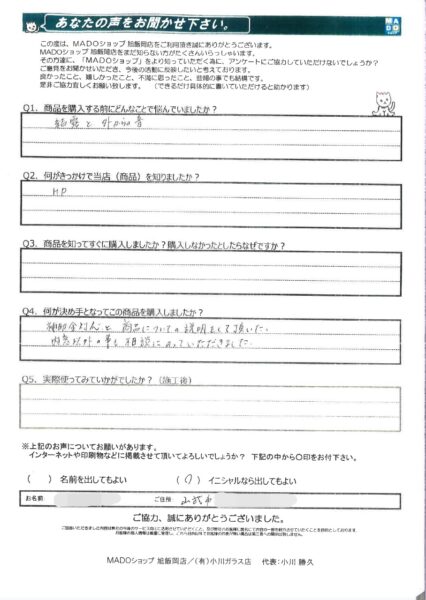 あなたの声をお聞かせ下さい。
MADO
この度は、MADOショップ 旭飯岡店をご利用頂き誠にありがとうございます。
MADOショップ 旭飯岡店をまだ知らない方がたくさんいらっしゃいます。
その方達に、「MADOショップ」をより知っていただく為に、アンケートにご協力していただけないでしょうか?
ご意見をお聞かせいただき、今後の活動に反映したいと考えております。
良かったこと、嬉しかったこと、不満に思ったこと、皆様の事でも結構です。
是非ご協力宜しくお願い致します。(できるだけ具体的に書いていただけると助かります)
Q1、商品を購入する前にどんなことで悩んでいましたか?
結露と外からの音
Q2、何がきっかけで当店(商品)を知りましたか?
HP
Q3、商品を知ってすぐに購入しましたか?購入しなかったとしたらなぜですか?
Q4、何が決め手となってこの商品を購入しましたか?
補助金対応と商品についての説明をして頂いた。
内窓以外の事も相談にのっていただきました。
Q5、実際使ってみていかがでしたか?(施工後)
※上記のお声についてお願いがあります。
インターネットや印刷物などに掲載させて頂いてよろしいでしょうか? 下記の中から〇印をお付下さい。
( ) 名前を出してもよい (〇) イニシャルなら出してもよい
お名前 ご住所 山武市
ご協力、誠にありがとうございました。
MADOショップ 旭飯岡店/(有)小川ガラス店 代表:小川 勝久